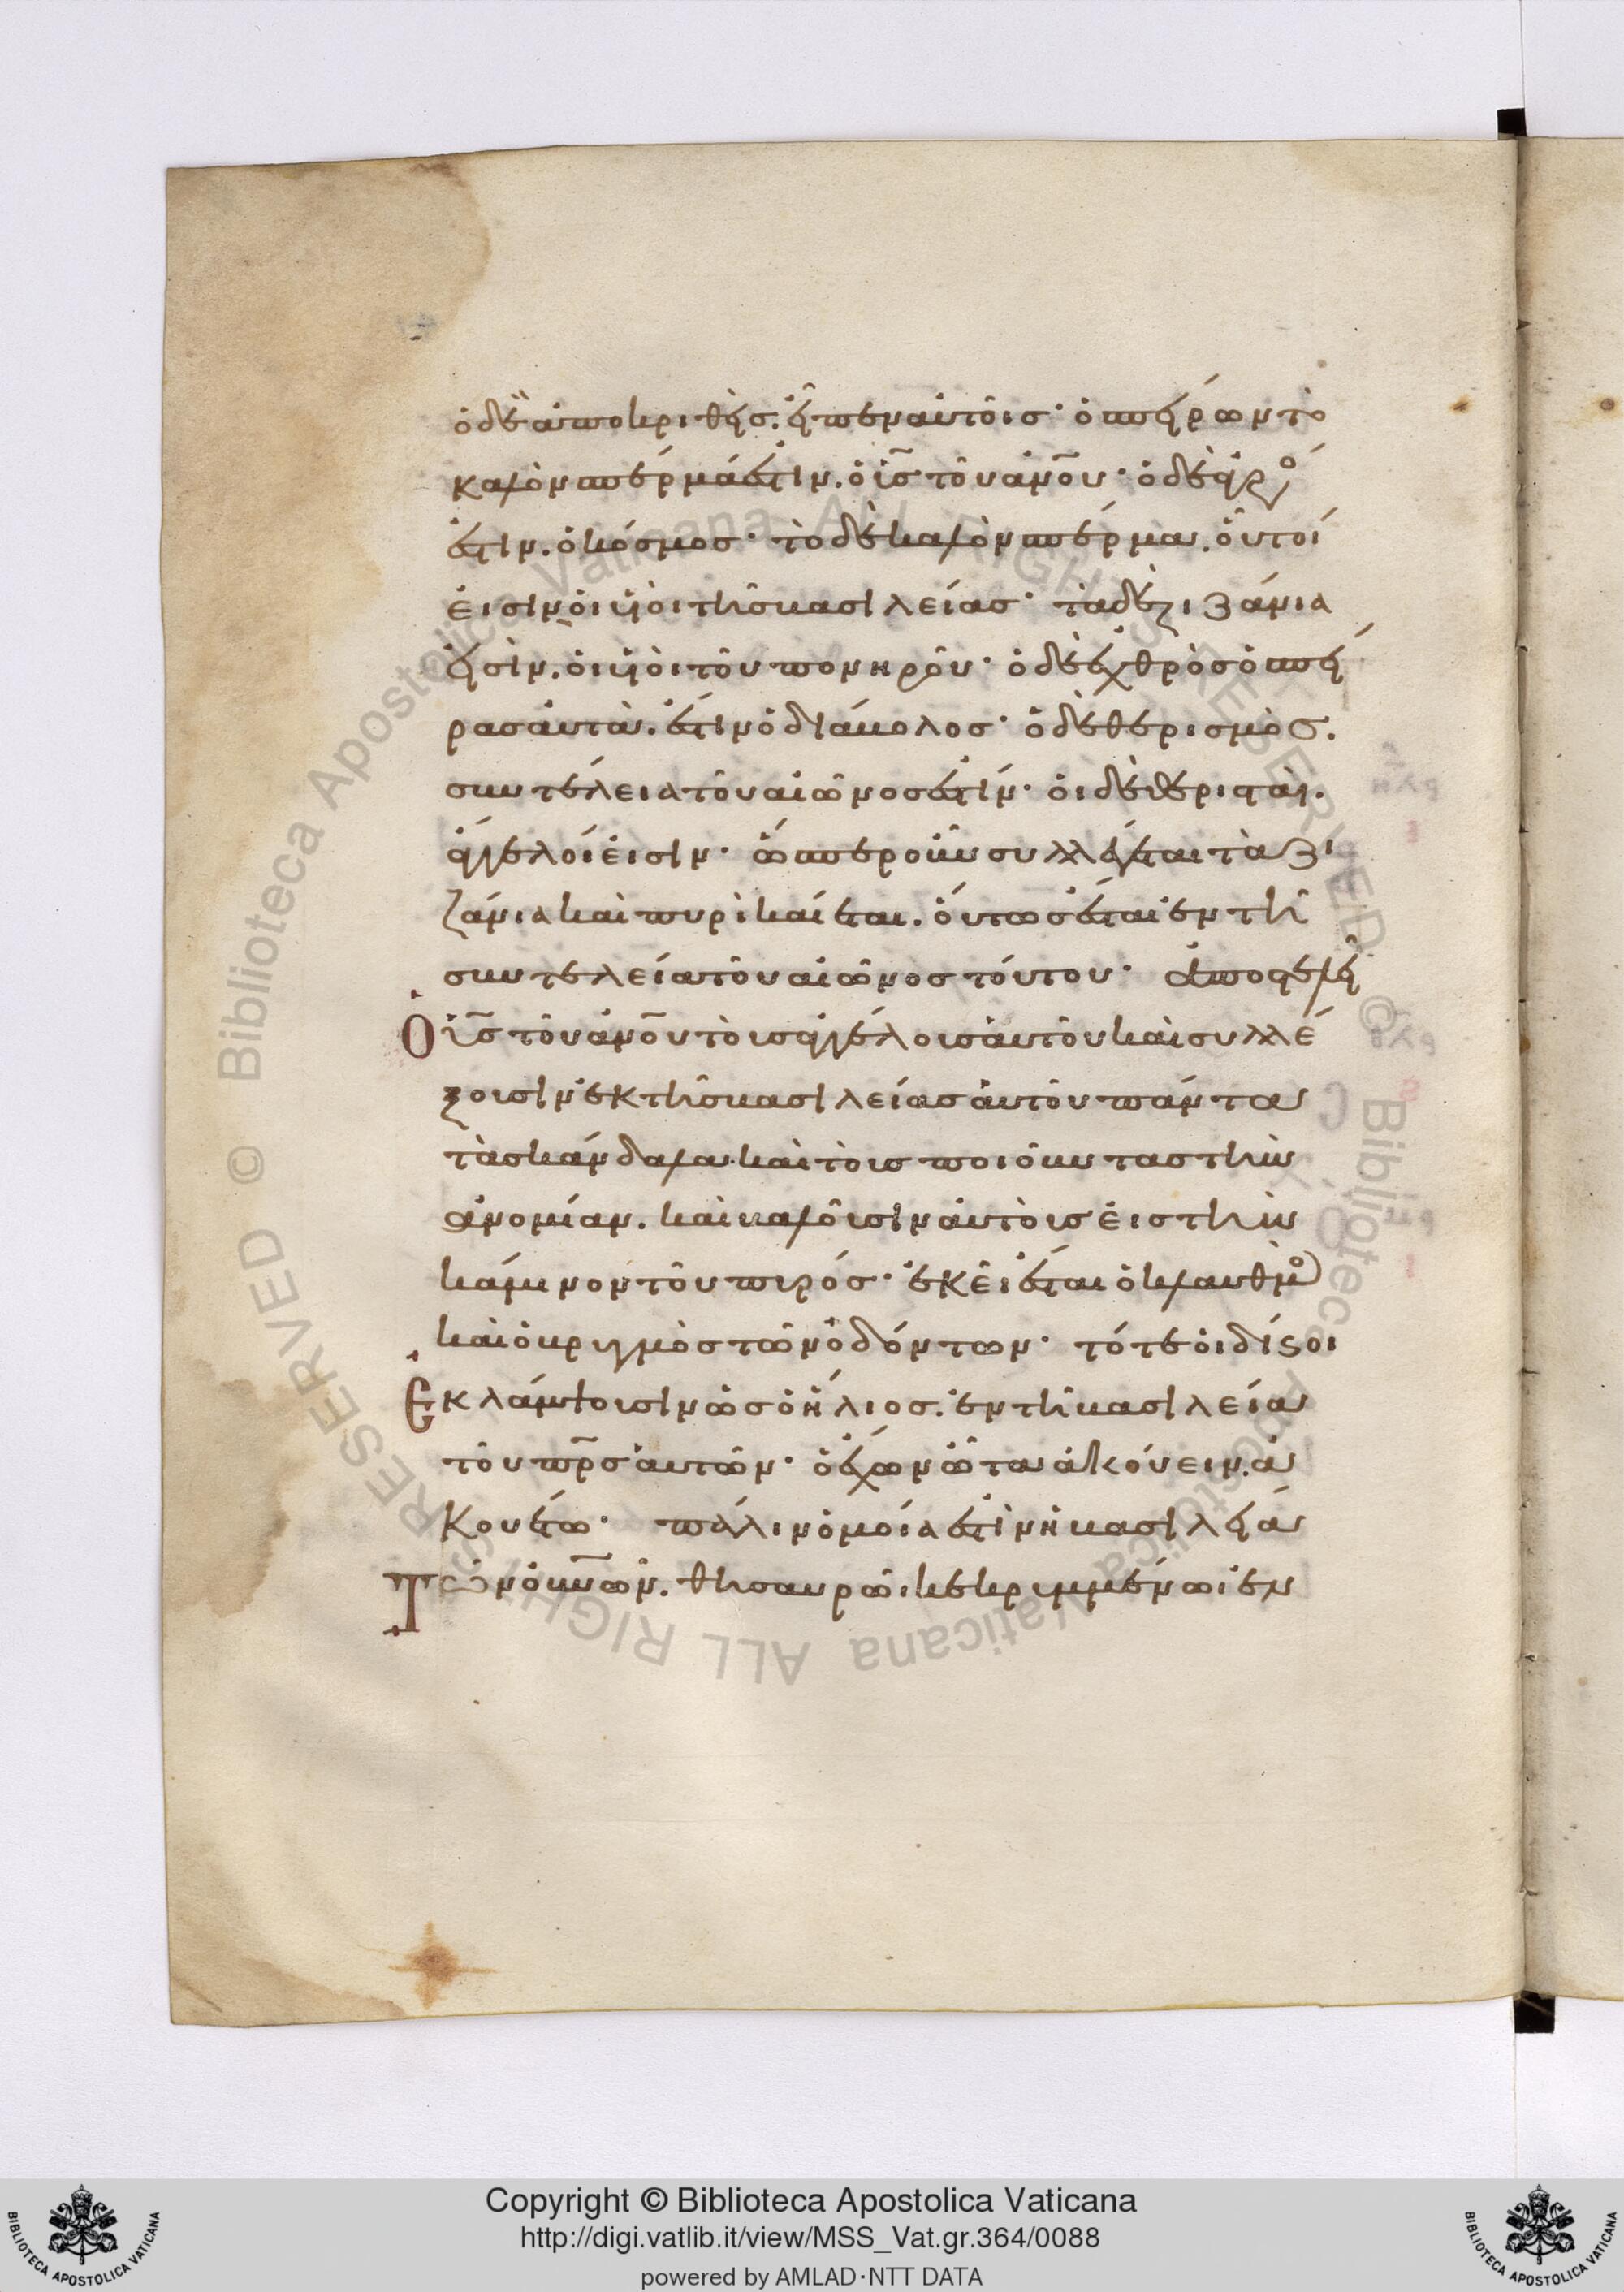 ὁ δὲ ἀποκριθεὶς. εἶπεν αὐτοῖς· ὁ σπείρων τὸ
καλὸν σπέρμα ἐστιν. ὁ υἱς τοῦ ανου· ὁ δὲ ἀγρο
ἐστιν. ὁ κόσμος· τὸ δὲ καλὸν σπέρμα. οὗτοί
εἰσιν οἱ υἱοὶ τῆς βασιλείας· τὰ δὲ ζιζάνια
εἰσὶν. οἱ υἱοὶ τοῦ πονηροῦ· ὁ δὲ ἐχθρὸς ὁ σπεί
ρας αὐτὰ. ἐστιν ὁ διάβολος· ὁ δὲ θερισμὸς.
συντέλεια τοῦ αἰῶνος ἐστίν· οἱ δὲ θερισταὶ.
ἄγγελοί εἰσιν· ὥσπερ οὖν συλλέγεται τὰ ζι
ζάνια καὶ πυρὶ καίεται. οὕτως ἔσται ἐν τῆ
συντελεία τοῦ αἰῶνος τούτου· ἀποστελεῖ
ὁ υἱς τοῦ ανου τοὺς ἀγγέλους αὐτοῦ καὶ συλλέ
ξουσιν ἐκ τῆς βασιλείας αὐτοῦ πάντα
τὰ σκάνδαλα. καὶ τοὺς ποιοῦντας τὴν
ἀνομίαν. καὶ βαλοῦσιν αὐτοὺς εἰς τὴν
κάμινον τοῦ πυρός· ἐκεῖ ἔσται ὁ κλαυθμο
καὶ ὁ βρυγμὸς τῶν ὀδόντων· τότε οἱ δίκαιοι
ἐκλάμψουσιν ὡς ὁ ἥλιος. ἐν τῆ βασιλεία
τοῦ πρς αὐτῶν· ὁ ἔχων ὦτα ἀκούειν. ἀ
κουέτω· πάλιν ὁμοία ἐστὶν ἡ βασιλεία
τῶν ουνων. θησαυρῶι κεκρυμμένωι ἐν
Copyright © Biblioteca Apostolica Vaticana
http://digi.vatlib.it/view/MSS_Vat.gr.364/0088
powered by AMLAD·NTT DATA